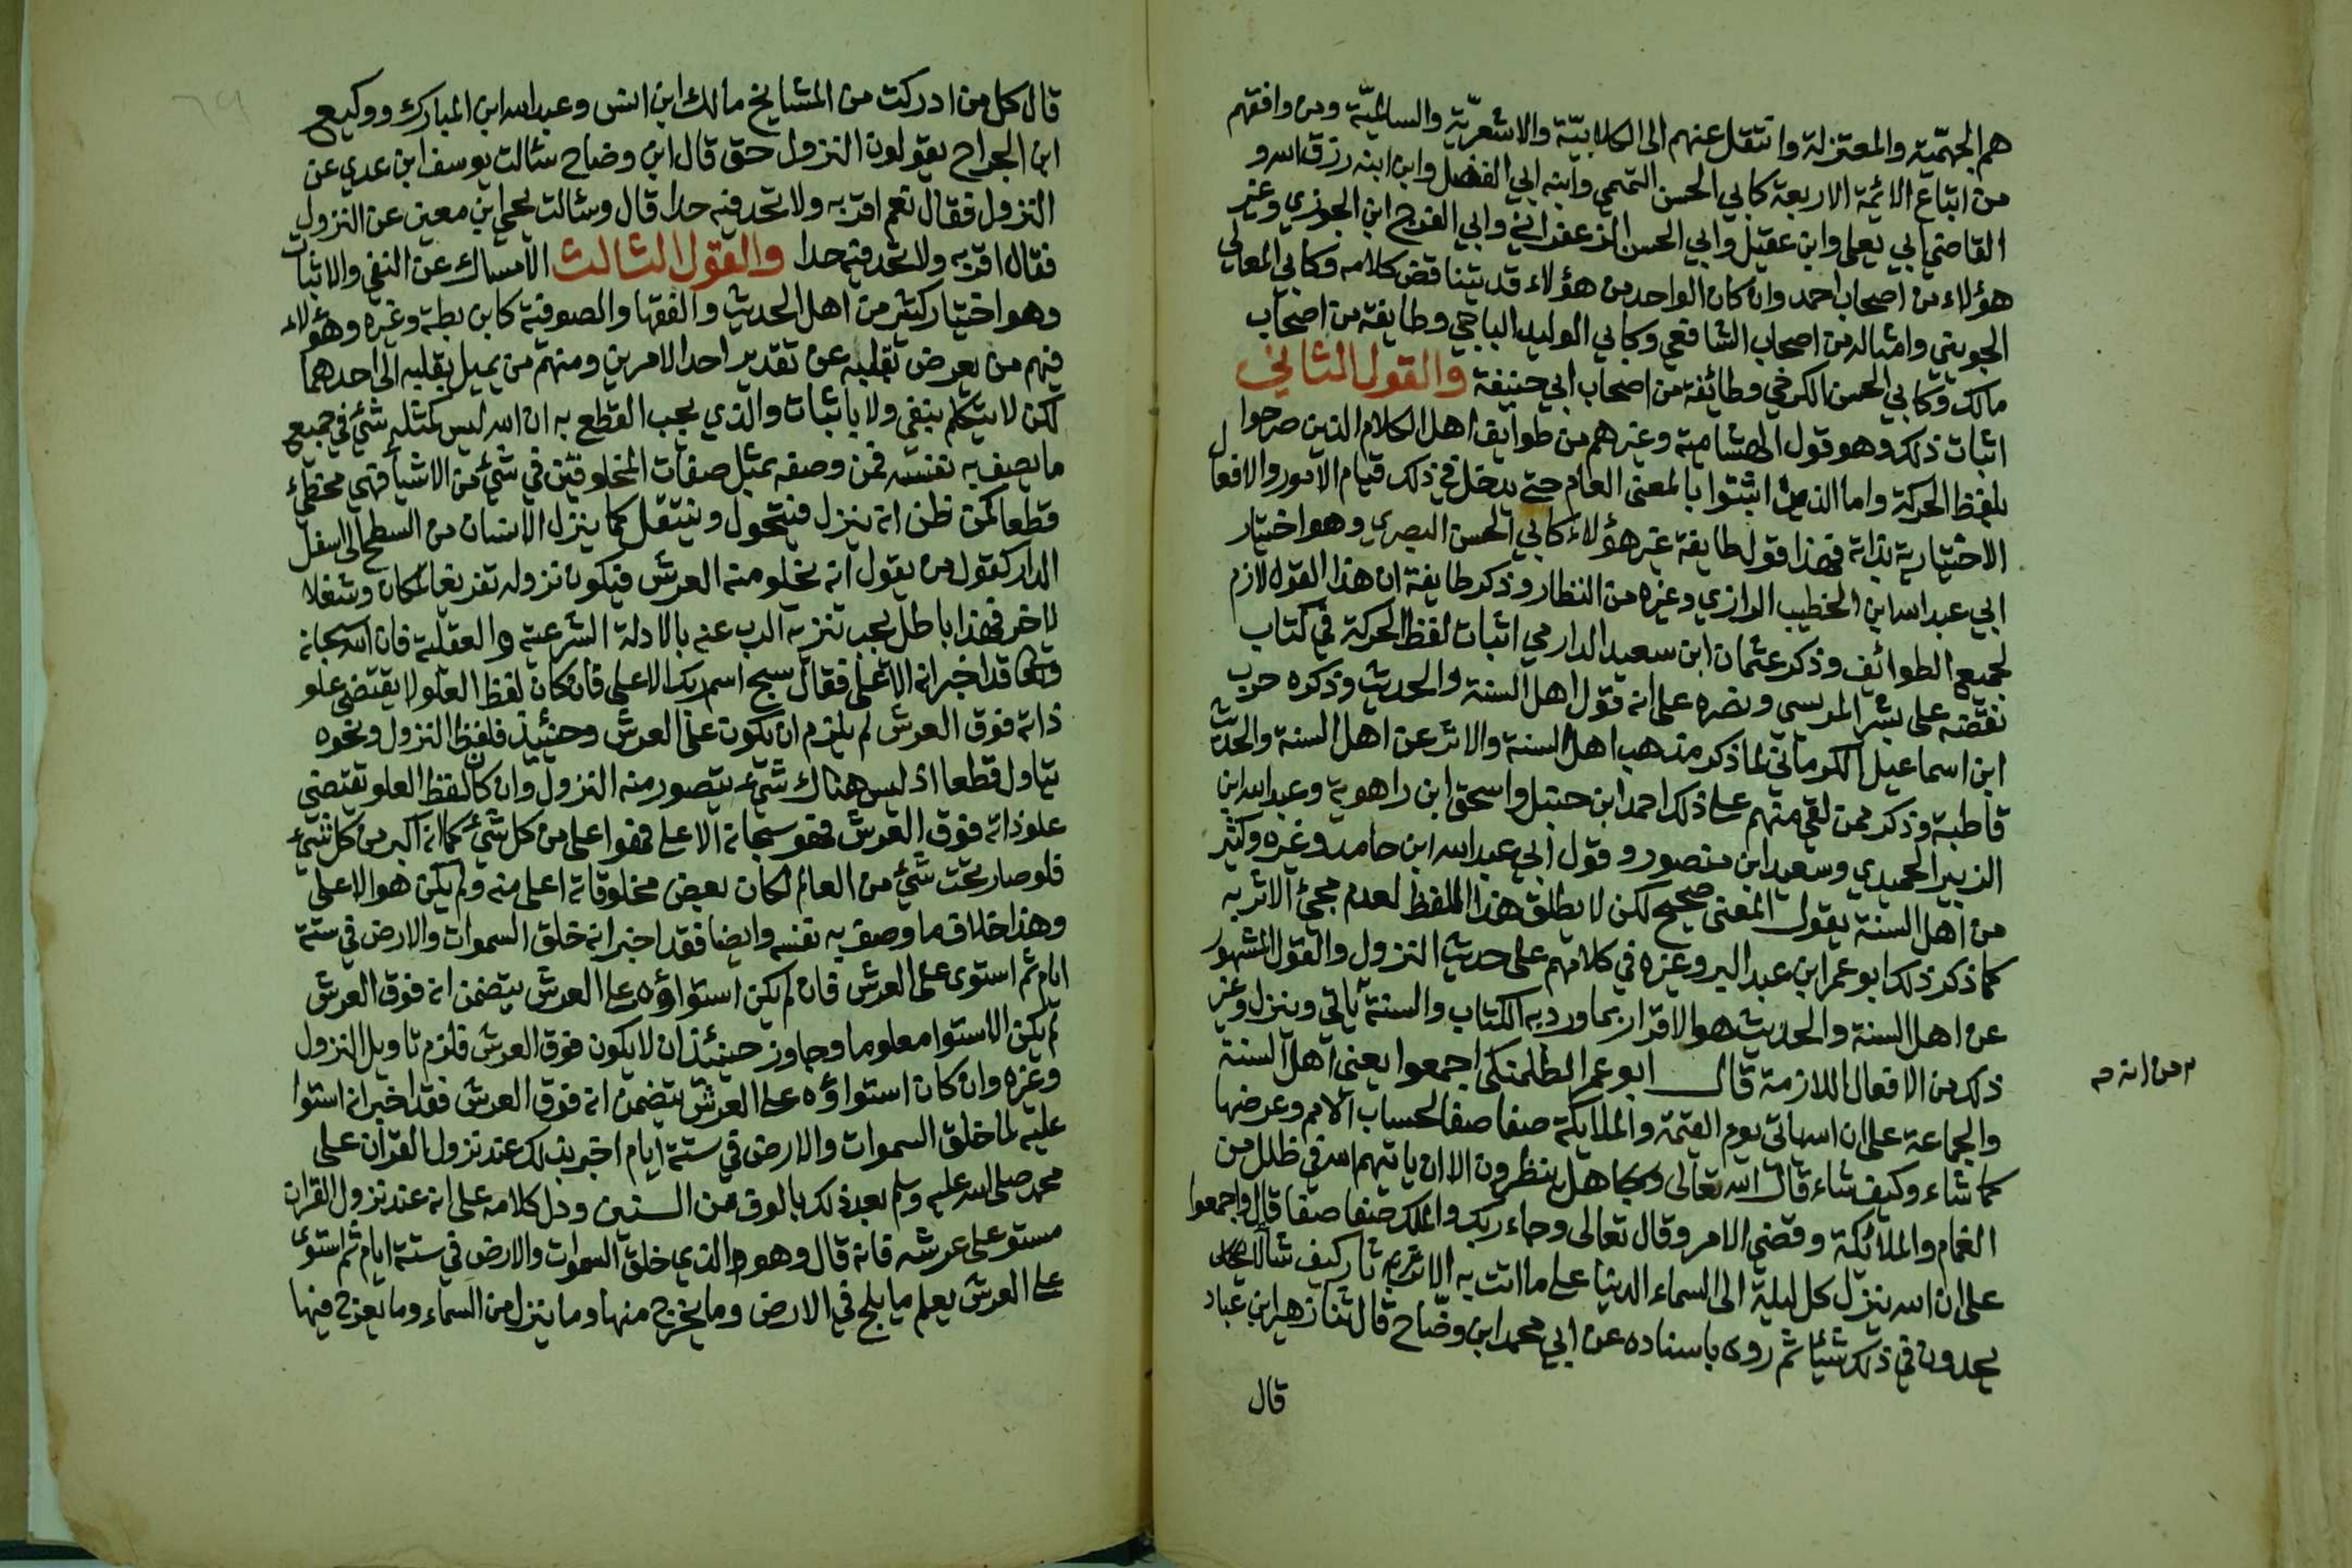 هم الجهمّية والمعتزلة وانتقل عنهم الى الكلابيّة والاشعريّة والسالميّة ومن وافقهم
من اتباع الائمة الاربعة كابي الحسن التميمي وابنه ابي الفضل وابن ابنه رزق الله و
القاضي ابي يعلى وابن عقيل وابي الحسن الزعفراني وابي الفرج ابن الجوزي وغير
هؤلاء من اصحاب احمد وان كان الواحد من هؤلاء قد يتناقض كلامه وكابي المعالي
الجويني وامثاله من اصحاب الشافعي وكابي الوليد الباجي وطايفة من اصحاب
مالك وكابي الحسن الكرخي وطائفة من اصحاب ابي حنيفة والقول الثاني
اثبات ذلك وهو قول الهشامية وغيرهم من طوايف اهل الكلام الذين صرحوا
بلفظ الحركة واما الذين اثبتوا بالمعنى العام حتى يدخل في ذلك قيام الامور والافعال
الاختيارية بذاته فهذا قول طايفة غير هؤلاء كابي الحسن البصري وهو اختيار
ابي عبد الله ابن الخطيب الرازي وغيره من النظار وذكر طايفة ان هذا القول لازم
لجميع الطوائف وذكر عثمان ابن سعيد الدارمي اثبات لفظ الحركة في كتاب
نقضه على بشر المريسي ونصره على انه قول اهل السنة والحديث وذكره حرب
ابن اسماعيل الكرماني لما ذكر مذهب اهل السنة والاثر عن اهل السنة والحديث
قاطبة وذكر ممن لقي منهم على ذلك احمد ابن حنبل واسحق ابن راهوية وعبد الله ابن
الزبير الحميدي وسعيد ابن منصور وقول ابي عبد الله ابن حامد وغيره وكثير
من اهل السنة يقول المعنى صحيح لكن لا يطلق هذا اللفظ لعدم مجئ الاثر به
كما ذكر ذلك ابو عمر ابن عبد البر وغيره في كلامهم على حديث النزول والقول المشهور
عن اهل السنة والحديث هو الاقرار بما ورد به الكتاب والسنة يأتي وينزل وغير
ذلك من الافعال اللازمة قال ابو عمر الطلمنكي اجمعوا يعني اهل السنة
والجماعة على ان الله ياتي يوم القيمة والملايكة صفا صفا لحساب الامم وعرضها
كما شاء وكيف شاء قال الله تعالى هل ينظرون الا ان ياتيهم الله في ظلل من
الغمام والملائكة وقضي الامر وقال تعالى وجاء ربك والملك صفا صفا قال واجمعوا
على ان الله ينزل كل ليلة الى السماء الدنيا على ما اتت به الاثار كيف شاء لا
يحدون في ذلك شيئا ثم روى باسناده عن ابي محمد ابن وضّاح قال ثنا زهير ابن عباد
قال
قال كل من ادركت من المشايخ مالك ابن انس وعبد الله ابن المبارك ووكيع
ابن الجراح يقولون النزول حق قال ابن وضاح سئالت يوسف ابن عدي عن
النزول فقال نعم اقر به ولا تحد فيه حدا قال وسئالت يحيى ابن معين عن النزول
فقال اقر به ولا تحد فيه حدا والقول الثالث الامساك عن النفي والاثبات
وهو اختيار كثير من اهل الحديث والفقها والصوفية كابن بطة وغيره وهؤلاء
فيهم من يعرض بقلبه عن تقدير احد الامرين ومنهم من يميل بقلبه الى احدهما
لكن لا يتكلم بنفي ولا باثبات والذي يجب القطع به ان الله ليس كمثله شئ في جميع
ما يصف به نفسه فمن وصفه بمثل صفات المخلوقين في شئ من الاشيا فهي مخطئ
قطعا كمن ظن انه ينزل فيتحول وينتقل كما ينزل الانسان من السطح الى اسفل
الدار كقول من يقول انه يخلو منه العرش فيكون نزوله تفريغا لمكان وشغلا
لاخر فهذا باطل يجب تنزيه الرب عنه بالادلة الشرعية والعقلية فان الله سبحانه
قد اخبر انه الاعلى فقال سبح اسم ربك الاعلى فان كان لفظ العلو لا يقتضي علو
ذاته فوق العرش لم يلزم ان يكون على العرش وحنيئذ فلفظ النزول ونحوه
يتاول قطعا اذ ليس هناك شئ يتصور منه النزول وان كان لفظ العلو تقتضي
علو ذاته فوق العرش فهو سبحانه الاعلى فهو اعلى من كل شئ كما انه اكبر من كل شئ
فلو صار تحت شئ من العالم لكان بعض مخلوقاته اعلى منه ولم يكن هو الاعلى
وهذا خلاف ما وصف به نفسه وايضا فقد اخبر انه خلق السموات والارض في ستة
ايام ثم استوى على العرش فان لم يكن استواؤه على العرش يتضمن انه فوق العرش
لم يكن الاستوا معلوما وجاوز حينئذ ان لا يكون فوق العرش فلزم تاويل النزول
وغيره وان كان استواؤه على العرش يتضمن انه فوق العرش فقد اخبر انه استوا
عليه لما خلق السموات والارض في ستة ايام اخبر بذلك عند نزول القرآن على
محمد صلى الله عليه وسلم بعد ذلك بالوف من السنين ودل كلامه على انه عند نزول القران
مستو على عرشه فانه قال وهو الذي خلق السموات والارض في ستة ايام ثم استوى
على العرش يعلم ما يلج في الارض وما يخرج منها وما ينزل من السماء وما يعرج فيها